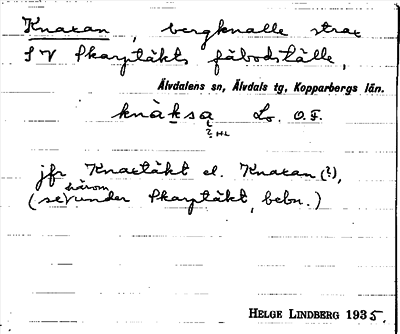 Knaxan, bergknalle strax
S V Skarptäkts fäbodställe,
Älvdalens sn, Älvdals tg, Kopparbergs län.
knàksa Lo. O.F.
? HL
jfr Knaxtäkt el. Knaxan (?),
(se härom under Skarptäkt, bebn.)
HELGE LINDBERG 1935.